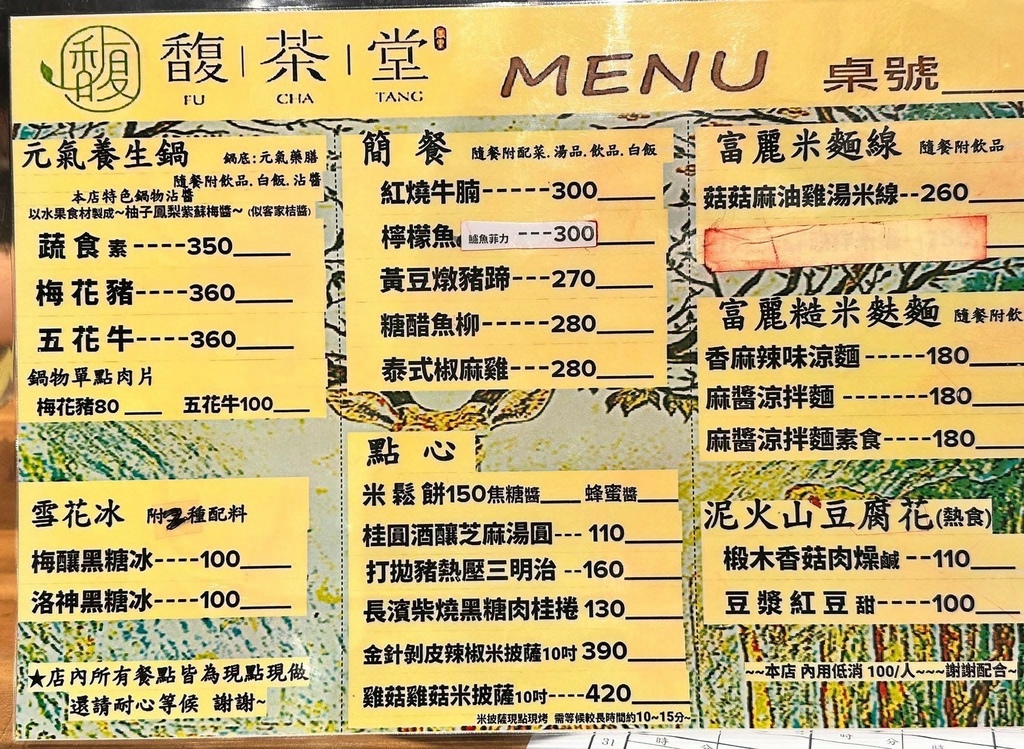 馥 茶 堂
FU CHA TANG
MENU 桌號____
元氣養生鍋 鍋底:元氣藥膳
隨餐附飲品.白飯.沾醬
本店特色鍋物沾醬
以水果食材製成~柚子鳳梨紫蘇梅醬~ (似客家桔醬)
蔬食素----350____
梅花豬----360____
五花牛----360____
鍋物單點肉片
梅花豬80 ___ 五花牛100___
雪花冰 附 種配料
梅釀黑糖冰----100____
洛神黑糖冰----100____
★店內所有餐點皆為現點現做
還請耐心等候 謝謝~
簡餐 隨餐附配菜.湯品.飲品.白飯
紅燒牛腩------300____
檸檬魚 鱸魚菲力 ---300____
黃豆燉豬蹄----270____
糖醋魚柳------280____
泰式椒麻雞----280____
點心
米鬆餅150焦糖醬____ 蜂蜜醬____
桂圓酒釀芝麻湯圓--- 110____
打拋豬熱壓三明治 --160____
長濱柴燒黑糖肉桂捲 130____
金針剝皮辣椒米披薩10吋 390____
雞菇雞菇米披薩10吋----420____
米披薩現點現烤 需等候較長時間約10~15分~
富麗米麵線 隨餐附飲品
菇菇麻油雞湯米線--260____
富麗糙米麩麵 隨餐附飲
香麻辣味涼麵 -----180____
麻醬涼拌麵 -------180____
麻醬涼拌麵素食----180____
泥火山豆腐花(熱食)
椴木香菇肉燥鹹 --110____
豆漿紅豆甜-----100____
~~本店 內用低消 100/人~~~謝謝配合~
31 時 分 時 分 時